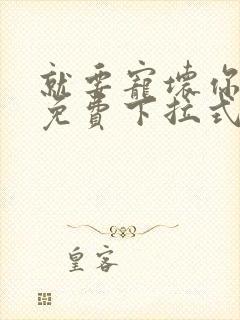 就要寵壞你
免費下拉式
皇客